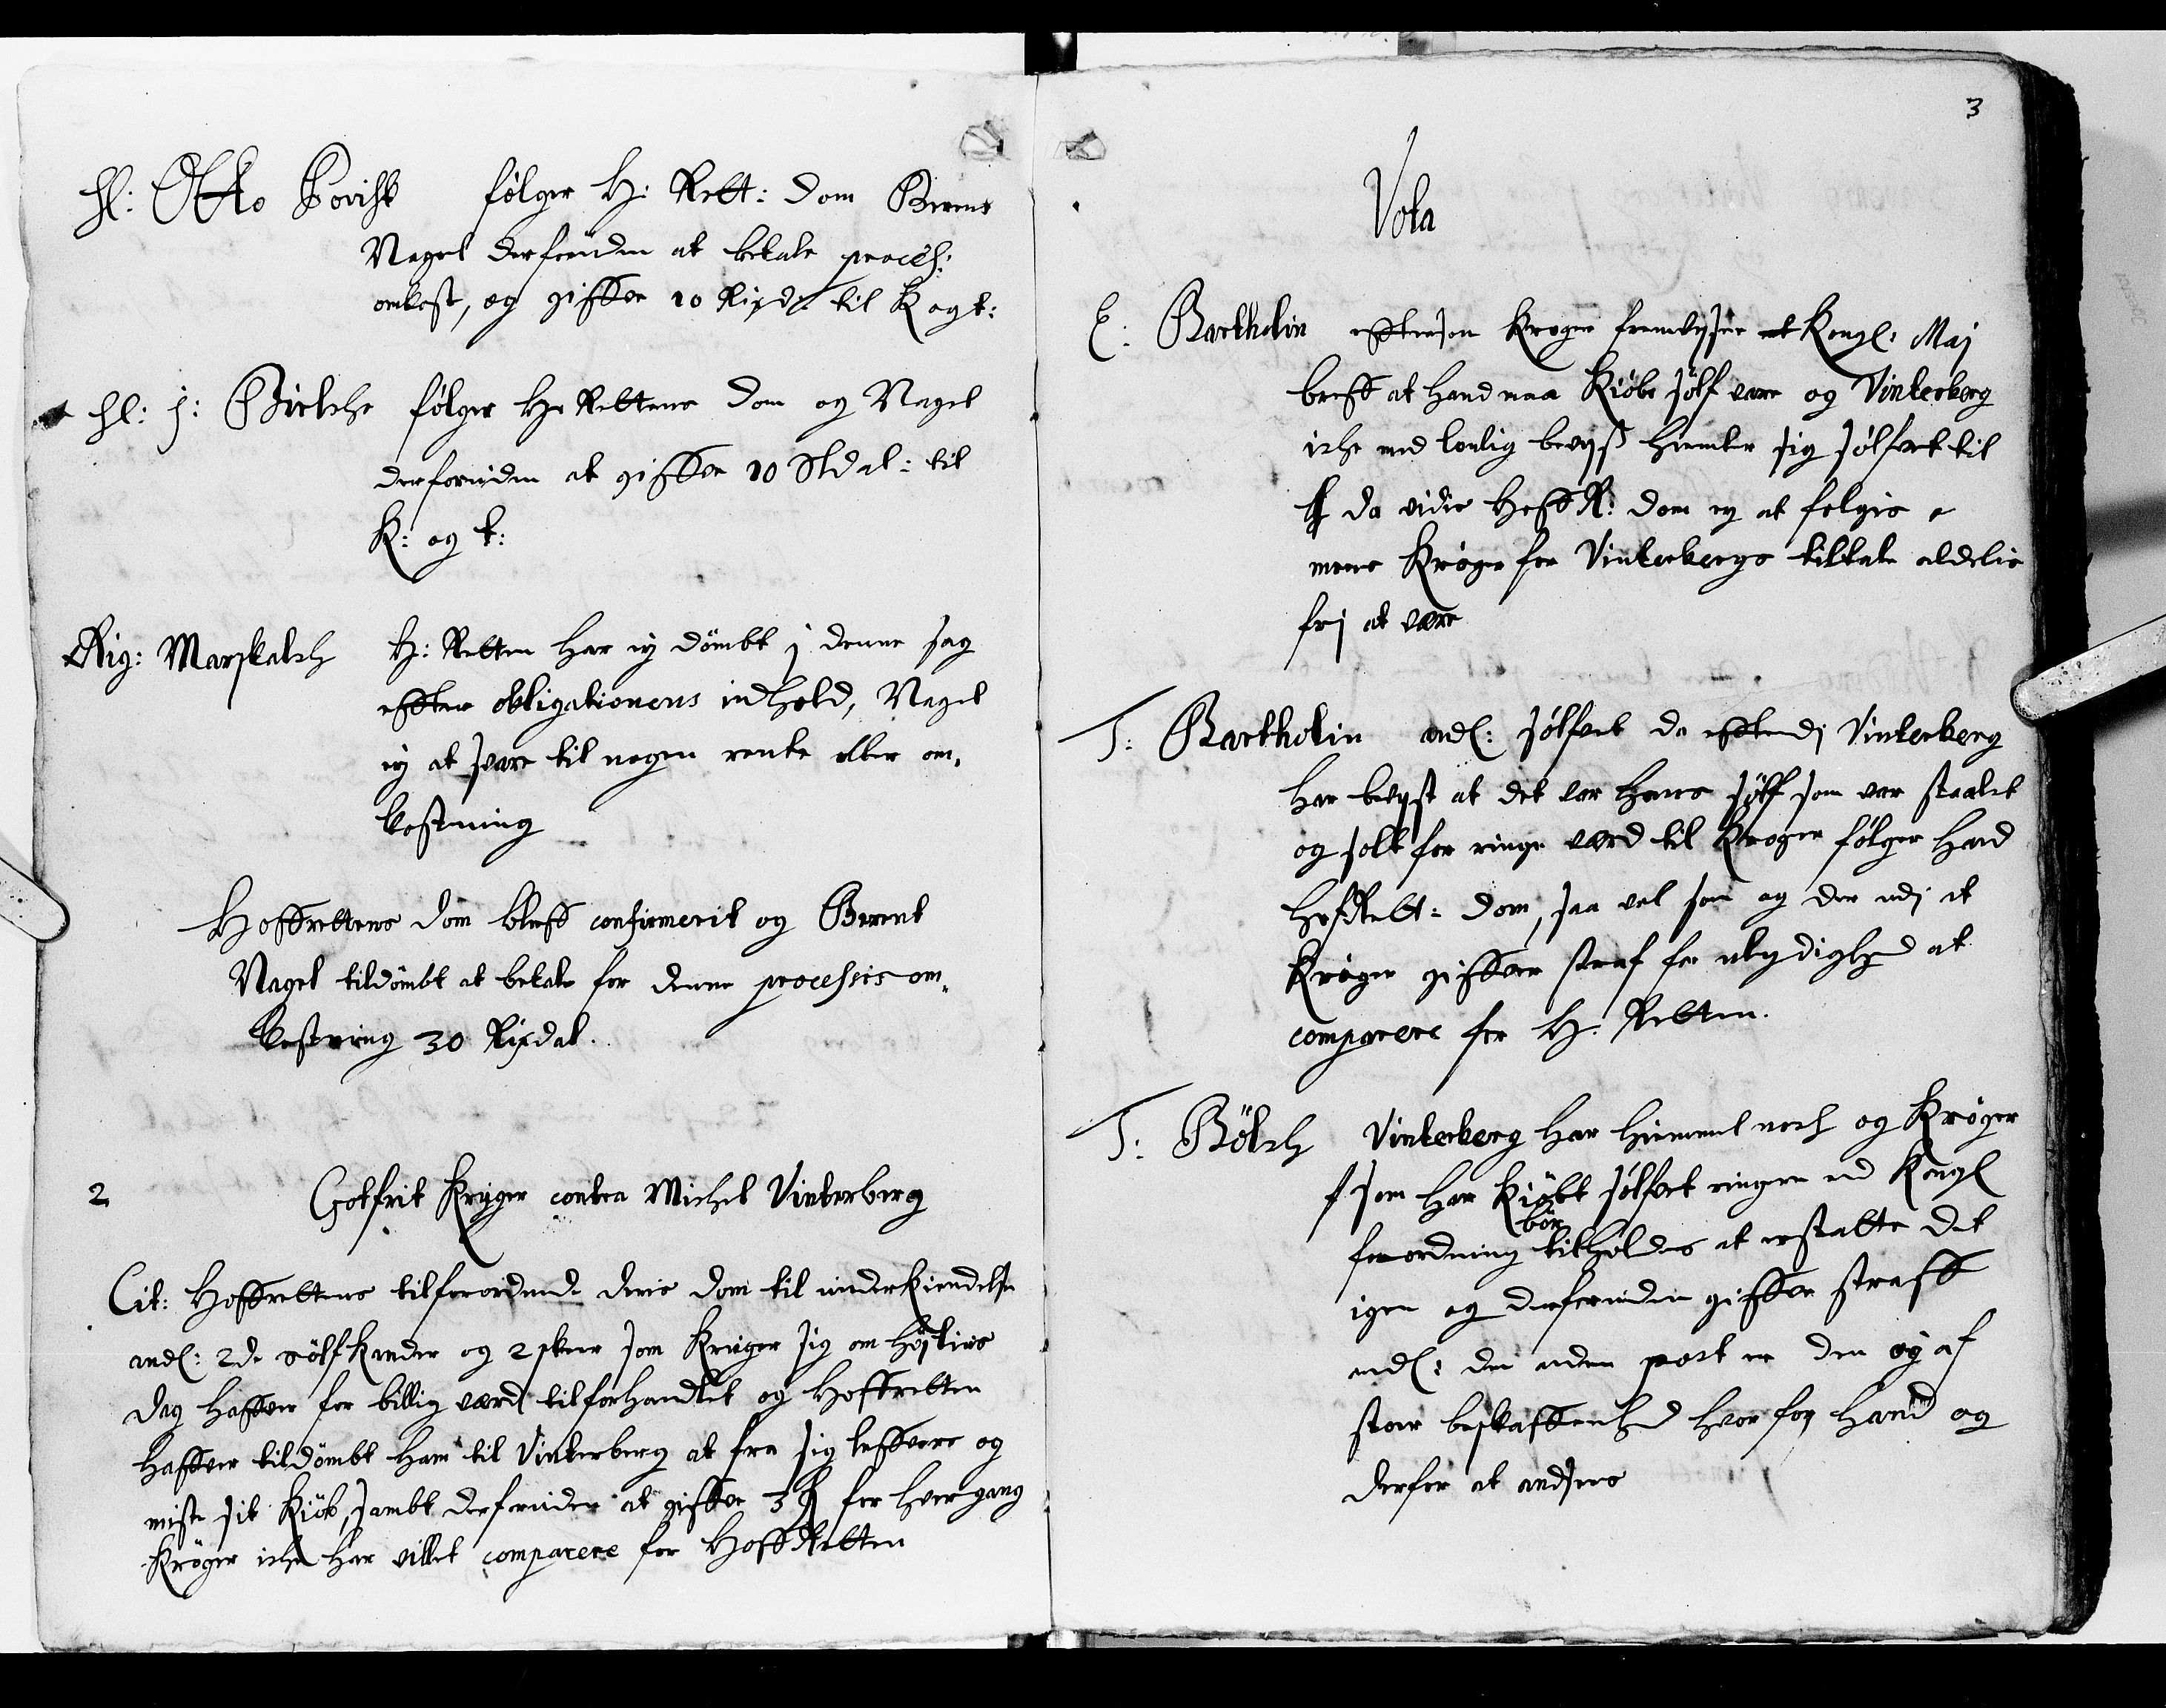 Hl: Otto Povisk følger H: Rett: dom Berent
Nagel derforuden at betale process:
omkost, og giffve 10 Rixdr til K og k:
Hl: J: Bielche følger H: Rettens dom og Nagel
derforuden at giffve 10 Sldal: til
K: og k:
Rig: Marskalch H: Retten har ey dømbt j denne sag
effter obligationens indhold, Nagel
ey at svare til nogen rente eller om,
kostning
Hoffrettens dom bleff confirmerit og Berent
Nagel tildømbt at betale for denne processis om,
kostning 30 Rixdal.
2 Gotfrit Krüger contra Michel Vinterberg
Cit: Hoffrettens tilforordnede deris dom til underkiendelse
andl: 2de sølfkander og 2 skeer som Krüger sig om høstens
dag haffver for billig værd tilforhandlet og Hoffretten
haffver tildømbt ham til Vinterberg at fra sig leffvere og
miste sit kiøb, sambt derforuden at giffve 3 for hver gang
Krøger iche har villet comparere for HoffRetten
3
Vota
C: Bartholin efftersom Kröger fremvyser et Kongl: Maj
breff at hand maa kiøbe sølf vare og Vinterberg
iche med lovlig bevyß hiemler sig sølfvet til
da vidis HoffR: dom ey at følgis
mens Krøger for Vinterbergs tiltale aldelis
frj at være
T: Bartholin andl: sølfvet da efftendj Vinterberg
har bevyst at det var hans sølf som var staalet
og solt for ringe værd til Krøger følger hand
HofRett: dom, saa vel som og der udj at
Krøger giffver straf for ulydighed at
comparere for H: Retten.
T: Bölch Vinterberg har hiemmel noch og Krøger
som har kiøbt sølfvet ringere end Kongl
forordning bör tilholdes at erstatte det
igen og derforuden giffve straff
andl: den anden post er den og af
stoer beskaffenhed hvor for hand og
derfor at andses